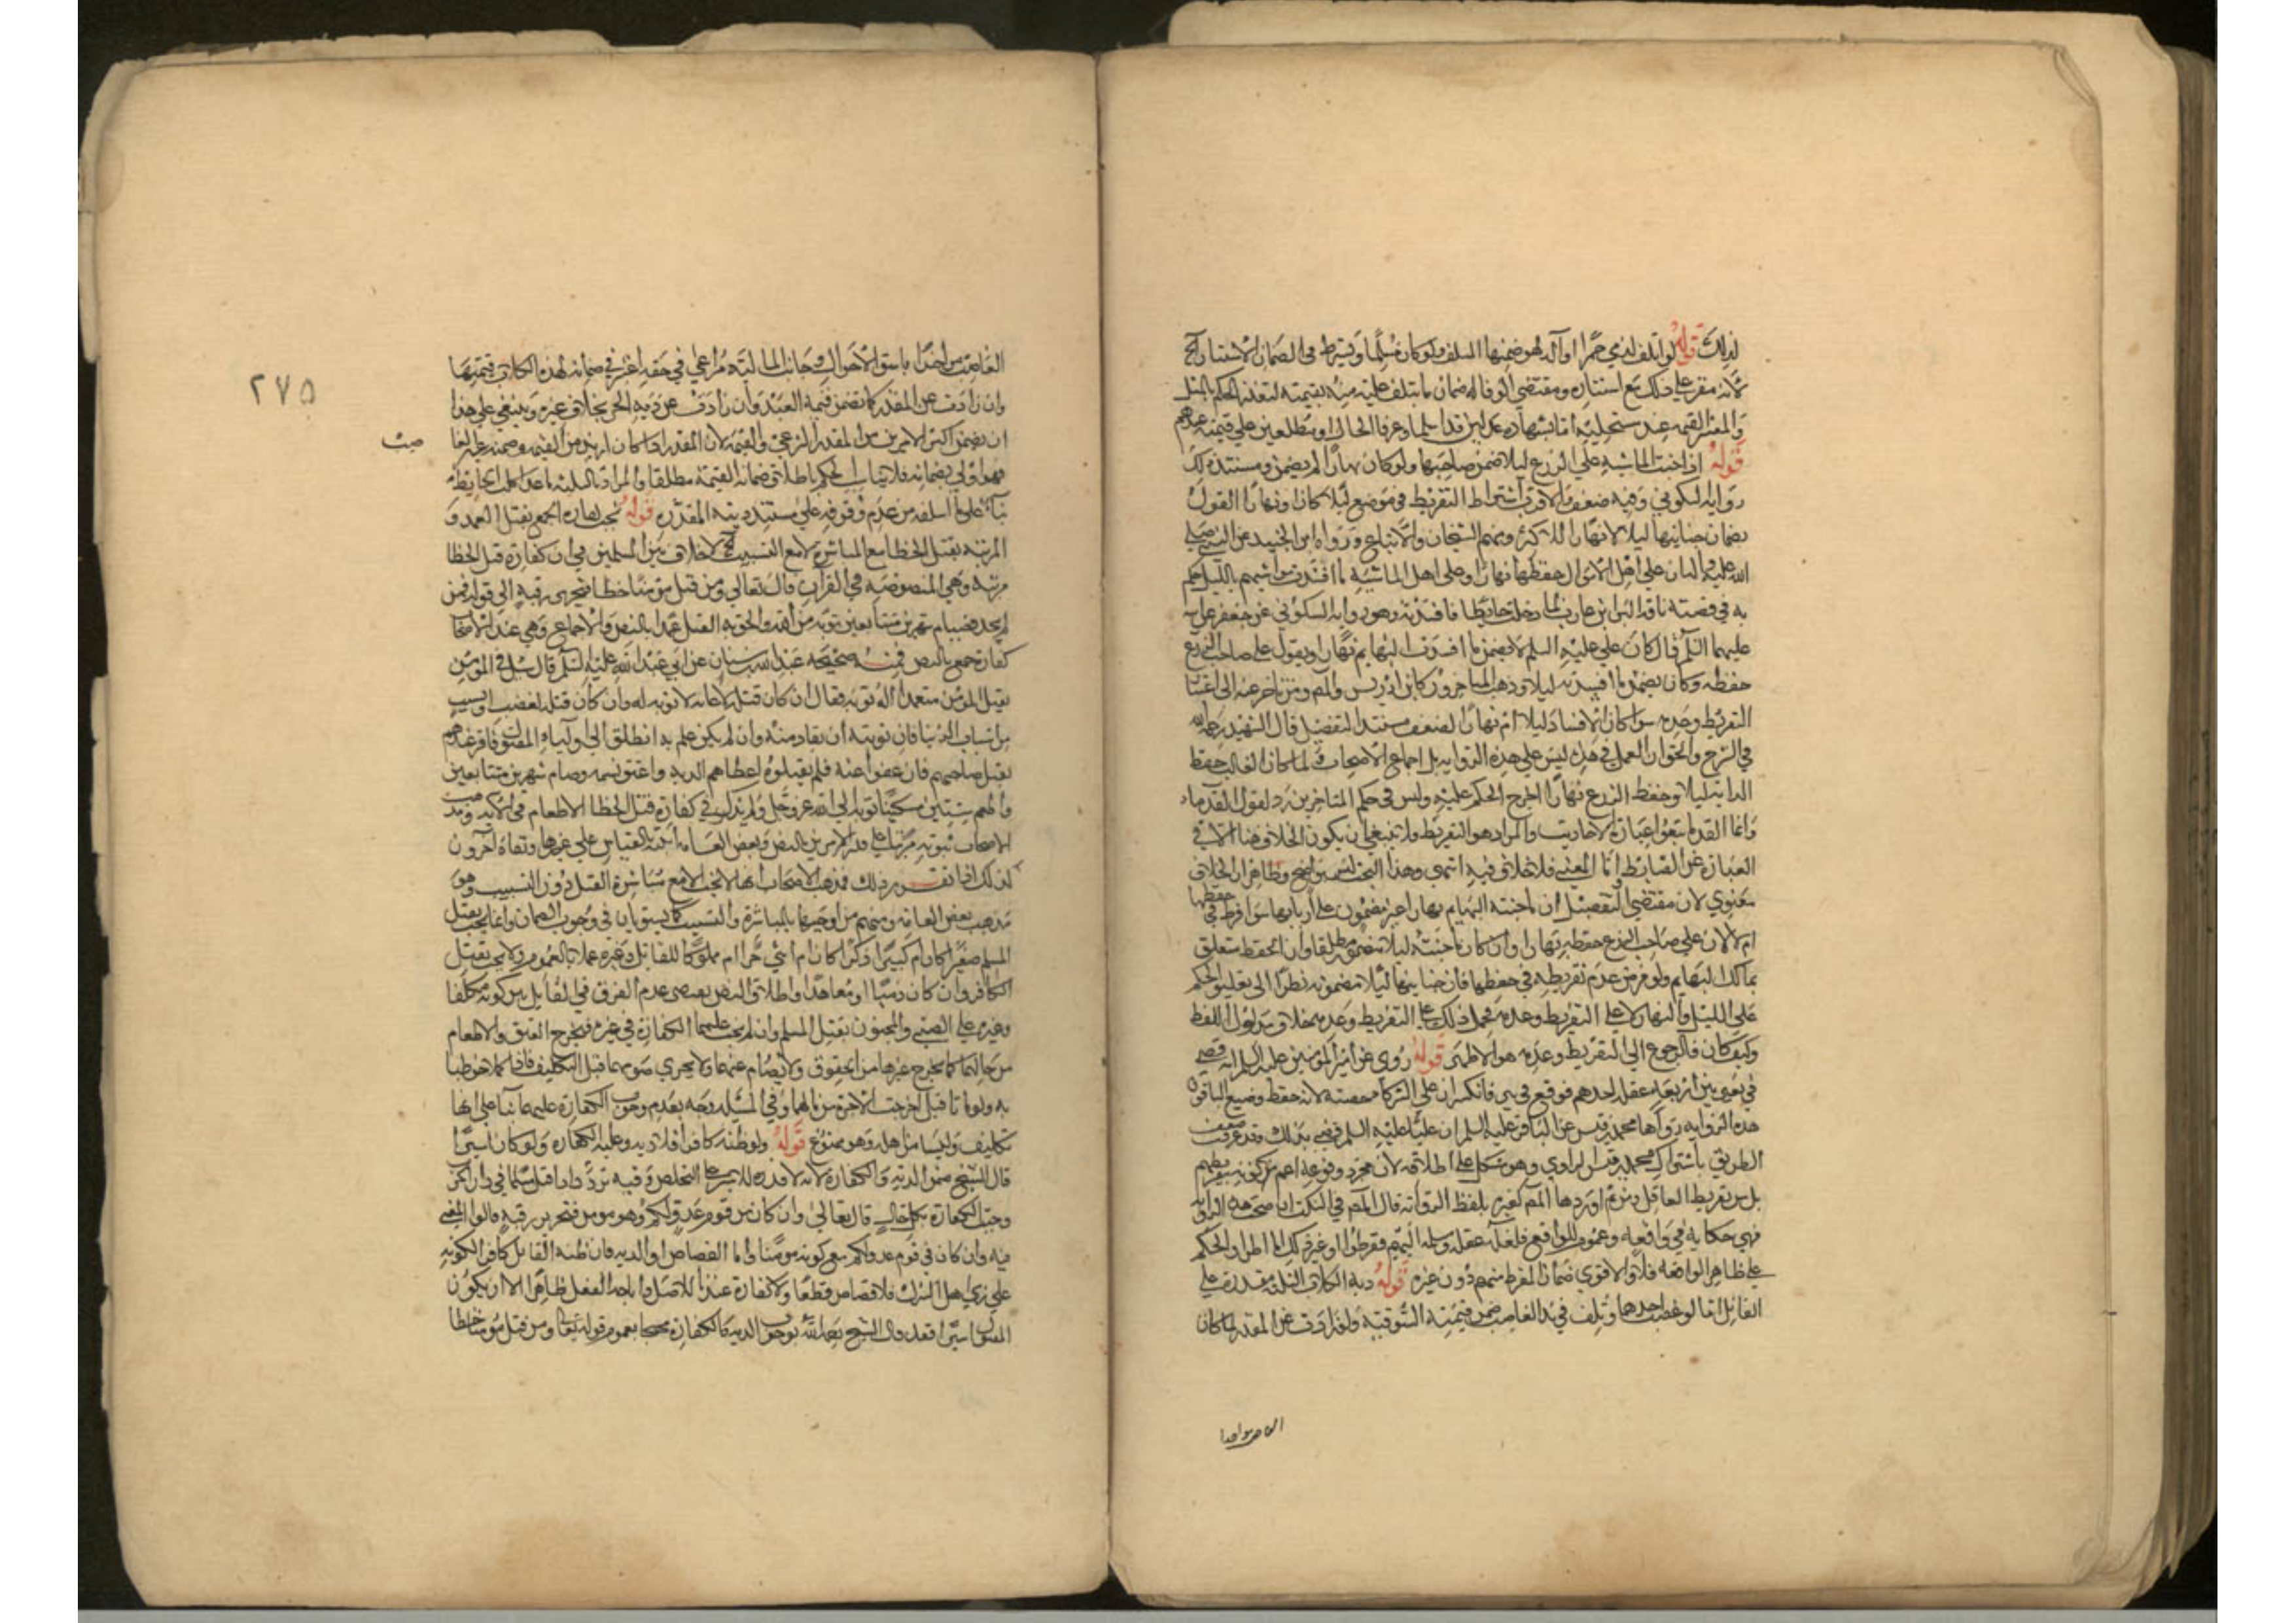 لذلك قوله لو اتلف لذمي خمرا او آلة لهو ضمنها المتلف ولو كان مسلما ويشترط في الضمان الاستتار الخ
لانه مقر على ذلك مع استتاره ومقتضى الوفا له ضمان ما يتلف عليه منه بقيمته لتعذر الحكم بالمثل
والمعتبر القيمه عند مستحليه اما بشهاده عدلين قد اسلما وعرفا الحال او مطلعين على قيمته عندهم
قوله اذا جنت الماشيه على الزرع ليلا ضمن صاحبها ولو كان نهارا لم يضمن ومستند ذلك
رواية السكوني وفيه ضعف والاقرب اشتراط التفريط في موضع ليلا كان او نهارا القول
بضمان جنايتها ليلا لا نهارا للاكثر ومنهم الشيخان والاتباع ورواه ابن الجنيد عن النبي صلى
الله عليه واله ان على اهل الاموال حفظها نهارا وعلى اهل الماشيه ما افسدت مواشيهم بالليل حكم
به في قصة ناقة البرا بن عازب لما دخلت حايطا فافسدته وهو رواية السكوني عن جعفر عن ابيه
عليهما السلم قال كان علي عليه السلم لا يضمن ما افسدت البهايم نهارا ويقول على صاحب الزرع
حفظه وكان يضمن ما افسدته ليلا وذهب المتاخرون كابن ادريس والمص ومن تاخر عنه الى اعتبار
التفريط وعدمه سوا كان الافساد ليلا ام نهارا لضعف مستند التفصيل قال الشهيد رحمه الله
في الشرح والحق ان العمل في هذه ليس على هذه الرواية بل اجماع الاصحاب ولما كان الغالب حفظ
الدابة ليلا وحفظ الزرع نهارا اخرج الحكم عليه وليس في حكم المتاخرين رد لقول القدماء
وانما القدما تبعوا عبارة الاحاديث والمراد هو التفريط ولا ينبغي ان يكون الخلاف هنا الا في
العبارة عن الضابط اما المعنى فلا خلاف فيه انتهى وهذا البحث ليس بواضح وظاهر ان الخلاف
معنوي لان مقتضى التفصيل ان ما جنته البهايم نهارا غير مضمون على اربابها سوا فرط في حفظها
ام لا لان على صاحب الزرع حفظه نهارا وان كان ما جنته ليلا مضمون مطلقا وان الحفظ متعلق
بمالك البهايم ولو فرض عدم تفريطه في حفظها فان جنايتها ليلا مضمونه نظرا الى تعليق الحكم
على الليل والنهار لا على التفريط وعدمه فحمل ذلك على التفريط وعدمه بخلاف مدلول اللفظ
وكيف كان فالرجوع الى التفريط وعدمه هو الاظهر قوله روي عن امير المؤمنين عليه السلم انه قضى
في بعير بين اربعه عقله احدهم فوقع في بير فانكسر ان على الشركا حصته لانه حفظ وضيع الباقون
هذه الروايه رواها محمد بن قيس عن الباقر عليه السلم ان عليا عليه السلم قضى بذلك وقد عرفت ضعف
الطريق باشتراك محمد بن قيس الراوي وهو مشكل على اطلاقه لان مجرد وقوعه اعم من كونه بتفريطهم
بل من تفريط العاقل ومن ثم اوردها المص كغيره بلفظ الروايه قال المص في النكت ان صحت هذه الرواية
فهي حكاية في واقعه وعموم للوقايع فلعله عقله وسلمه اليهم ففرطوا او غير ذلك اما اطراد الحكم
على ظاهر الواقعه فلا والاقوى ضمان المفرط منهم دون غيره قوله دية الكلاب الثلثة مقدرة على
القاتل اما لو غصب احدها وتلف في يد الغاصب ضمن قيمته السوقية ولو زادت عن المقدر لما كان
الغاصب ماخوذا
٢٧٥
الغاصب ماخوذا باشق الاحوال وجانب المالية مراعى في حقه اعتبر في ضمانه لهذه الكلاب قيمتها
وان زادت عن المقدر كما يضمن قيمة العبد وان زادت عن دية الحر بخلاف غيره وينبغي على هذا
ان يضمن اكثر الامرين من المقدر الشرعي والقيمة لان المقدر اذا كان ازيد من القيمه وضمنه غير الغا
صب
فهو اولى بضمانه فلا يناسب الحكم باطلاق ضمانه القيمة مطلقا والمراد بالثلثه ما عدا كلب الحايط
بنآء على ما اسلفه من عدم وقوفه على مستند ديته المقدرة قوله تجب كفارة الجمع بقتل العمد و
المرتبه بقتل الخطا مع المباشرة لا مع التسبيب الخ لا خلاف بين المسلمين في ان كفارة قتل الخطا
مرتبة وهي المنصوصة في القرآن قال تعالى ومن قتل مؤمنا خطا فتحرير رقبة الى قوله فمن
لم يجد فصيام شهرين متتابعين توبة من الله والحق به القتل عمدا بالنص والاجماع وهي عند الاصحاب
كفارة جمع بالنص فمنه صحيحه عبد الله بن سنان عن ابي عبد الله عليه السلم قال سئل في المؤمن
يقتل المؤمن متعمدا اله توبه فقال ان كان قتله لايمانه لا توبه له وان كان قتله لغضب او بسبب
من اسباب الدنيا فان توبته ان يقاد منه وان لم يكن علم به انطلق الى اوليآء المقتول فاقر عندهم
بقتل صاحبهم فان عفوا عنه فلم يقتلوه اعطاهم الدية واعتق نسمه وصام شهرين متتابعين
واطعم ستين مسكينا توبه الى الله عز وجل ولم يذكر في كفارة قتل الخطا الاطعام في الاية
الاصحاب ثبوته مرتبا على قدر الامرين بالنص وبعض العامه اثبته بالقياس على غيرها ونفاه آخرون
لذلك اذا تقرر ذلك فمذهب الاصحاب انها لا تجب الا مع مباشرة القتل دون التسبيب وهو
مذهب بعض العامه ومنهم من اوجبها بالمباشرة والتسبيب كما يستويان في وجوب الضمان وانما تجب بقتل
المسلم صغيرا كان ام كبيرا ذكرا كان ام انثى حرا ام مملوكا للقاتل وغيره عملا بالعموم ولا تجب بقتل
الكافر وان كان ذميا او معاهدا واطلاق النص يقتضي عدم الفرق في القاتل بين كونه مكلفا
وغيره على الصبي والمجنون بقتل المسلم وان لم تجب عليهما الكفارة في غيره فيخرج العتق والاطعام
من مالهما كما يخرج غيرها من الحقوق ولا يصام عنهما ولا يجزي صومهما قبل التكليف فاذا كملا خوطبا
به ولو ماتا قبل اخرجت الاجرة من مالهما وفي المسئله وجه بعدم وجوب الكفارة عليهما بنآء على انها
تكليف وليسا من اهله وهو ممنوع قوله ولو ظنه كافرا فلا دية وعليه الكفاره ولو كان اسيرا
قال الشيخ ضمن الدية والكفارة لانه لا قدرة للاسير على التخلص وفيه تردد اذا قتل مسلما في دار الكفر
وجبت الكفارة بكل حال قال تعالى وان كان من قوم عدو لكم وهو مومن فتحرير رقبة قالوا المعنى
فيه وان كان في قوم عدو لكم مع كونه مؤمنا واما القصاص او الدية فان ظنه القاتل كافرا لكونه
على زي اهل الشرك فلا قصاص قطعا ولا كفارة عندنا للاصل واباحة الفعل ظاهرا الا ان يكون
المقتول اسيرا فقد قال الشيخ رحمه الله بوجوب الدية كالكفارة محتجا بعموم قوله تعالى ومن قتل مؤمنا خطا